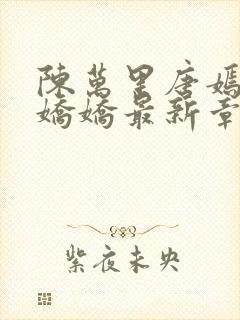 陳萬里唐嫣
嬌嬌最新章
紫夜未央